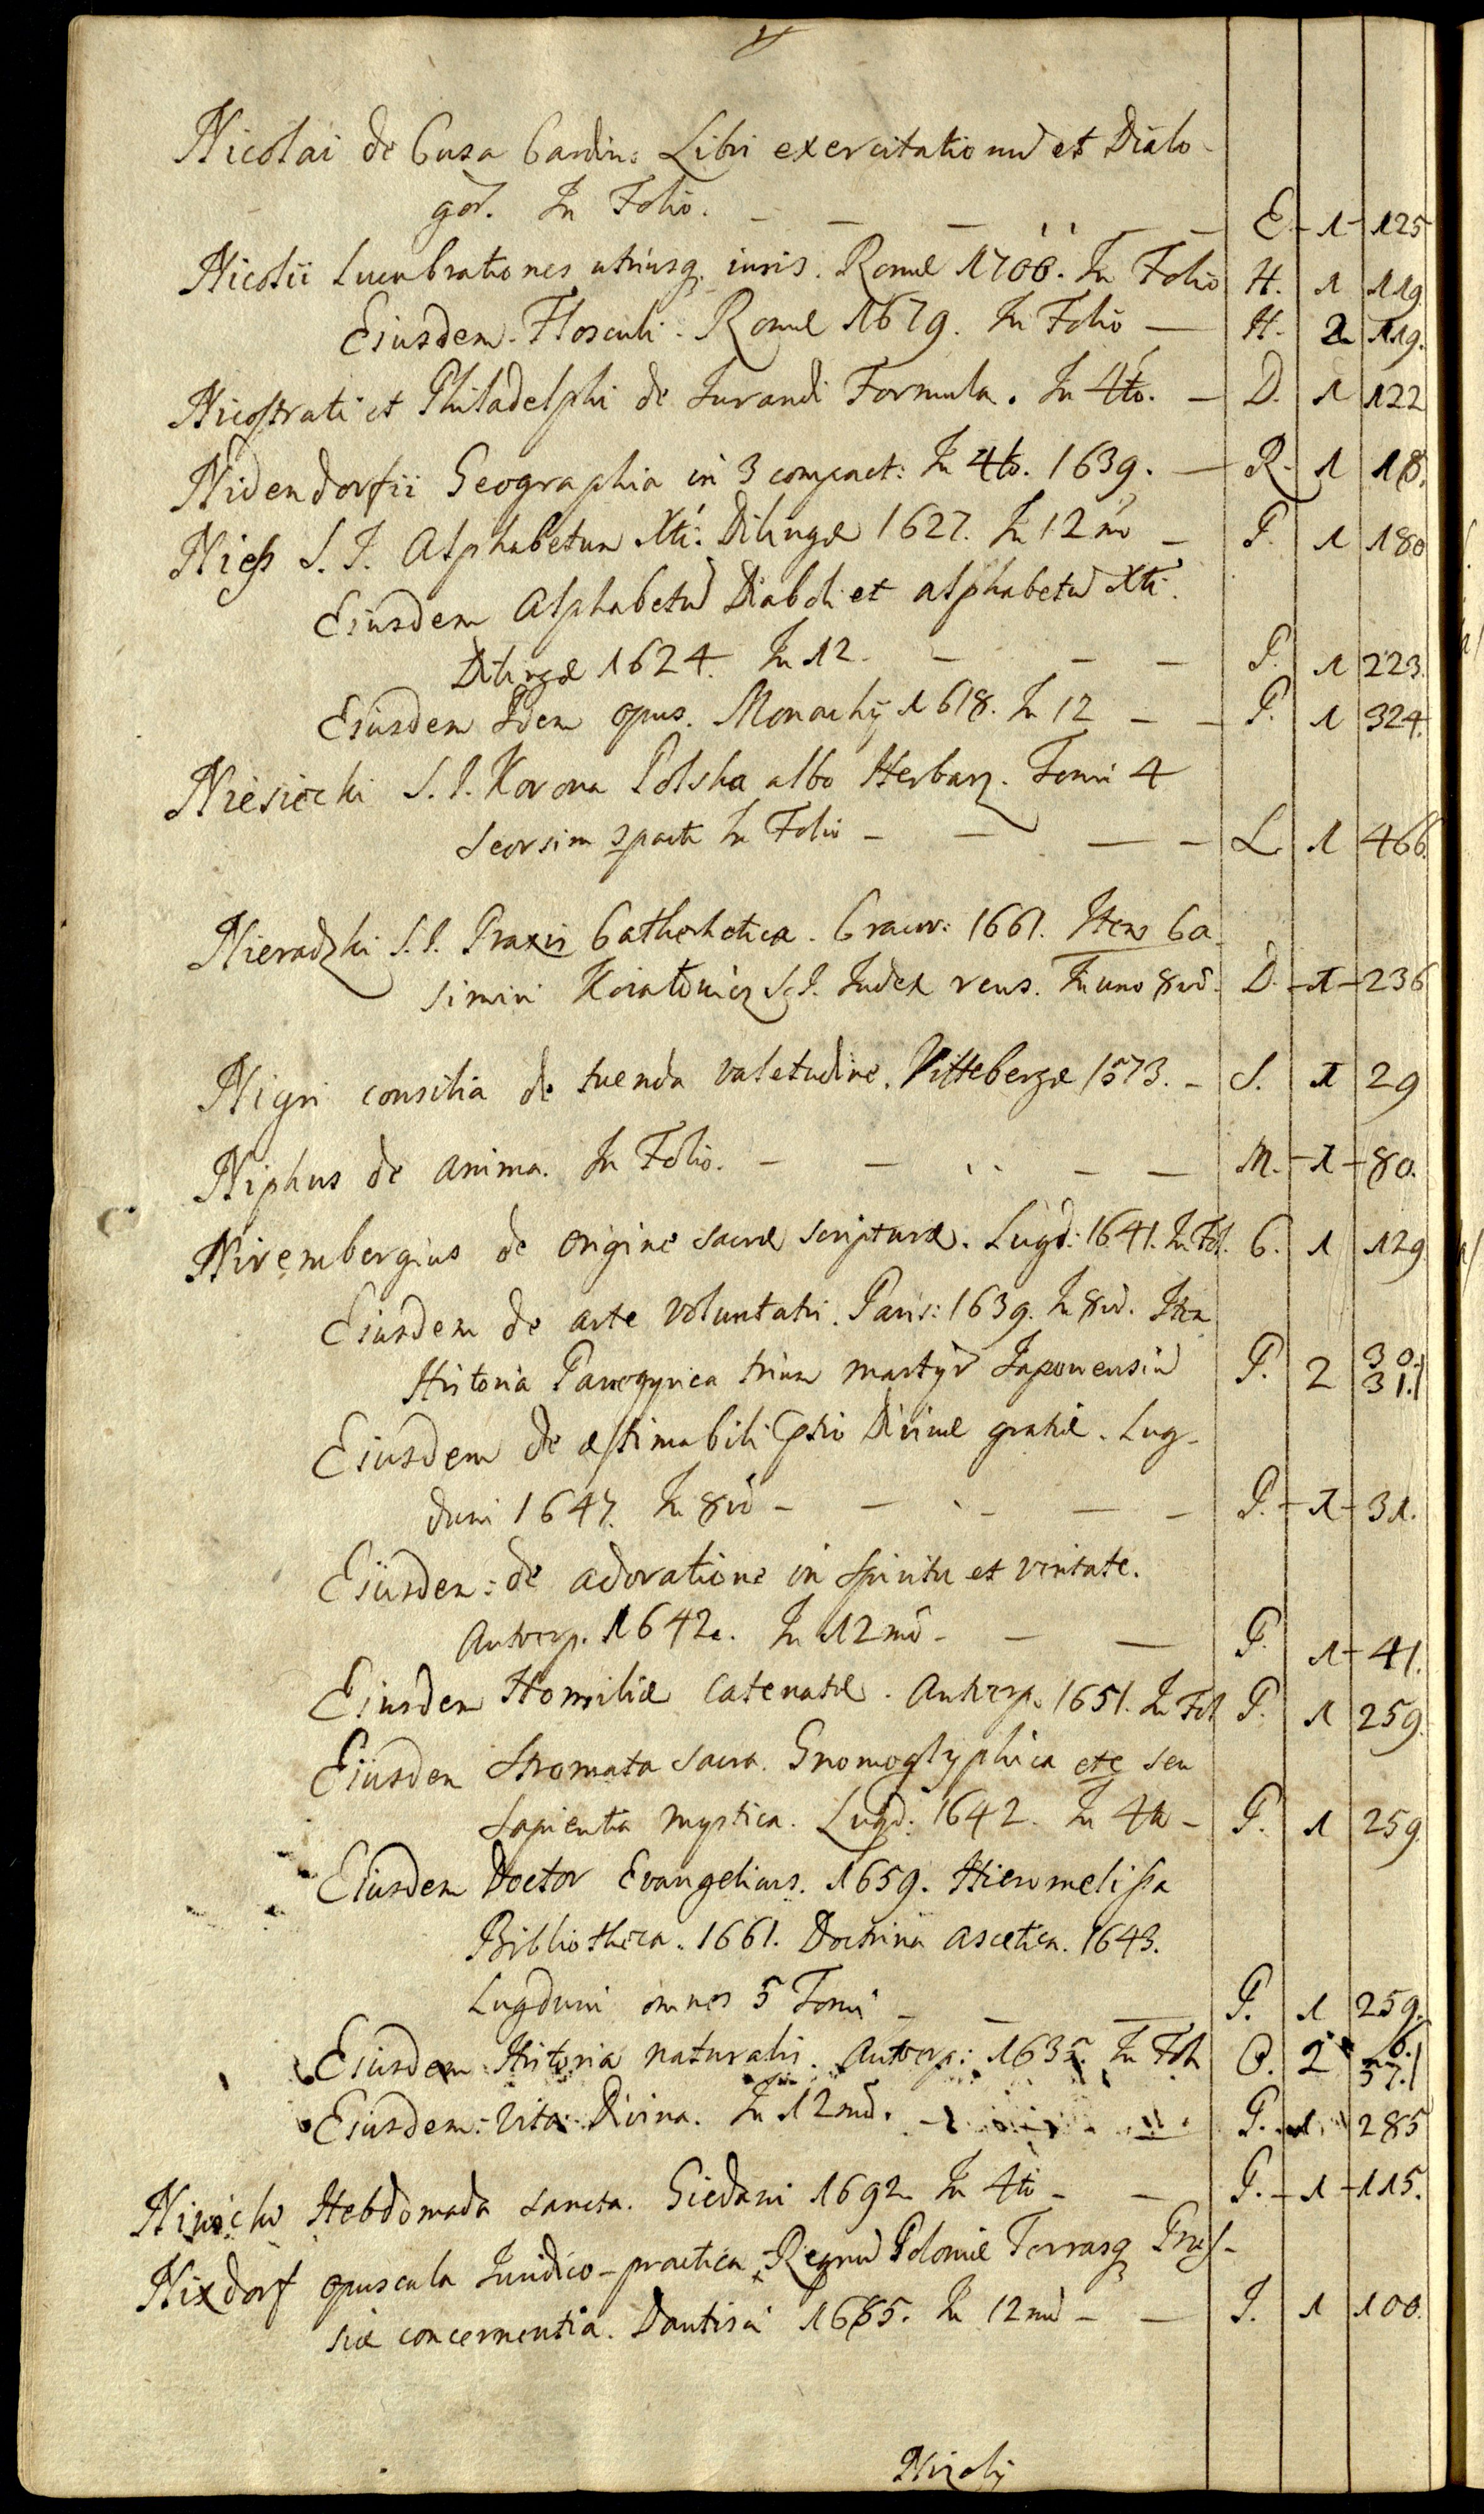 Nicolai de Cusa Cardin: Libri exercitationū et Dialo-
gor. In Folio. E - 1 - 125
Nicolii Lucubrationes utriusq. iuris. Romæ 1700. In Folio H. 1 119
Eiusdem Flosculi. Romæ 1679. In Folio H. 2 119.
Nicostrati et Philadelphi de Jurandi Formula. In 4to. D. 1 122
Nidendorfii Geographia in 3 compact: In 4to. 1639. R. 1 18.
Niess S. J. Alphabetum Xti: Dilingæ 1627. In 12mo P. 1 180
Eiusdem Alphabetū Diaboli et alphabetū Xti.
Dilingæ 1624. In 12. P. 1 223.
Eiusdem Idem opus. Monachij 1618. In 12 P. 1 324.
Niesiecki S. J. Korona Polska albo Herbarz. Tomi 4
Seorsim In Folio L 1 466.
Nieradzki S. J. Praxis Cathechetica. Cracov: 1661. Item Ca-
simiri Koiałowicz S. J. Index reus. In uno 8vō. D. - 1 - 236
Nigri consilia de tuenda valetudine. Vittebergæ 1573. S. 1 29
Niphus de anima. In Folio. M. - 1 - 80.
Nirembergius de origine sacræ scripturæ. Lugd: 1641. In Fol. C. 1 129
Eiusdem de arte voluntatis. Paris: 1639. In 8vō. Item
Historia Panegyrica trium martyrū Japonensiū P. 2 30. 31.
Eiusdem de æstimabili ptio Divinæ gratiæ. Lug-
duni 1647. In 8vō P. - 1 - 31.
Eiusdem: de adoratione in Spiritu et veritate.
Antverp. 1642. In 12mō P. 1 - 41.
Eiusdem Homiliæ Catenatæ. Antverp. 1651. In Fol P. 1 259.
Eiusdem Stromata Sacra. Gnomoglyphica etc seu
Sapientia mystica. Lugd: 1642. In 4to P. 1 259
Eiusdem Doctor Evangelicus. 1659. Hieromelissa
Bibliotheca. 1661. Doctrina ascetica. 1643.
Lugduni omnes 5 Tomi P. 1 259.
Eiusdem Historia naturalis. Antverp: 1635. In Fol O. 2 6. 57.
Eiusdem: Vita Divina. In 12mō. P. 1 285
Niwicki Hebdomada sancta. Giedani 1692. In 4to P. - 1 - 115.
Nixdorf opuscula Iuridico-practica Regnū Poloniæ Terrasq Prus-
siæ concernentia. Dantisci 1685. In 12mō J. 1 100.
Nizolij